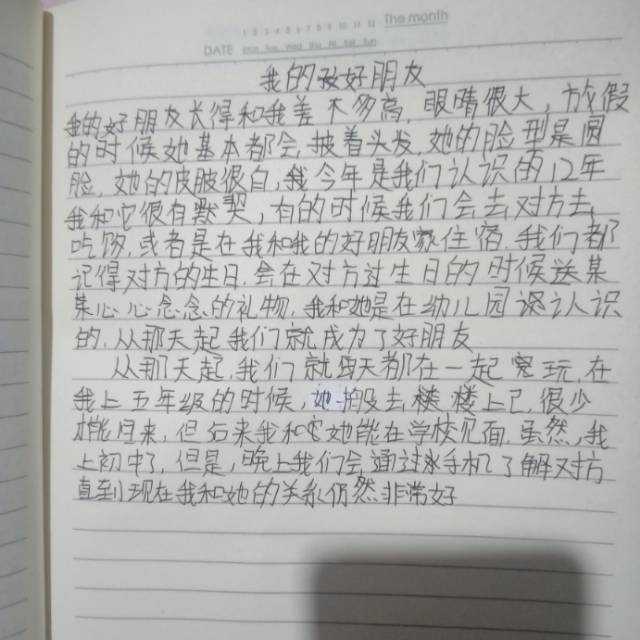 1 2 3 4 5 6 7 8 9 10 11 12 The month
DATE Mon Tue Wed Thu Fri Sat Sun
我的好朋友
我的好朋友长得和我差不多高，眼睛很大，放假
的时候她基本都会披着头发，她的脸型是圆
脸，她的皮肤很白，我今年是我们认识的12年
我和它很有默契，有的时候我们会去对方去
吃饭，或者是在我和我的好朋友家住宿，我们都
记得对方的生日，会在对方过生日的时候送某
某心心念念的礼物，我和她是在幼儿园认识
的，从那天起我们就成为了好朋友
从那天起，我们就每天都在一起玩，在
我上五年级的时候，她搬去楼上已，很少
才能回来，但后来我和她能在学校见面，虽然，我
上初中了，但是，晚上我们会通过手机了解对方
直到现在我和她的关系仍然非常好